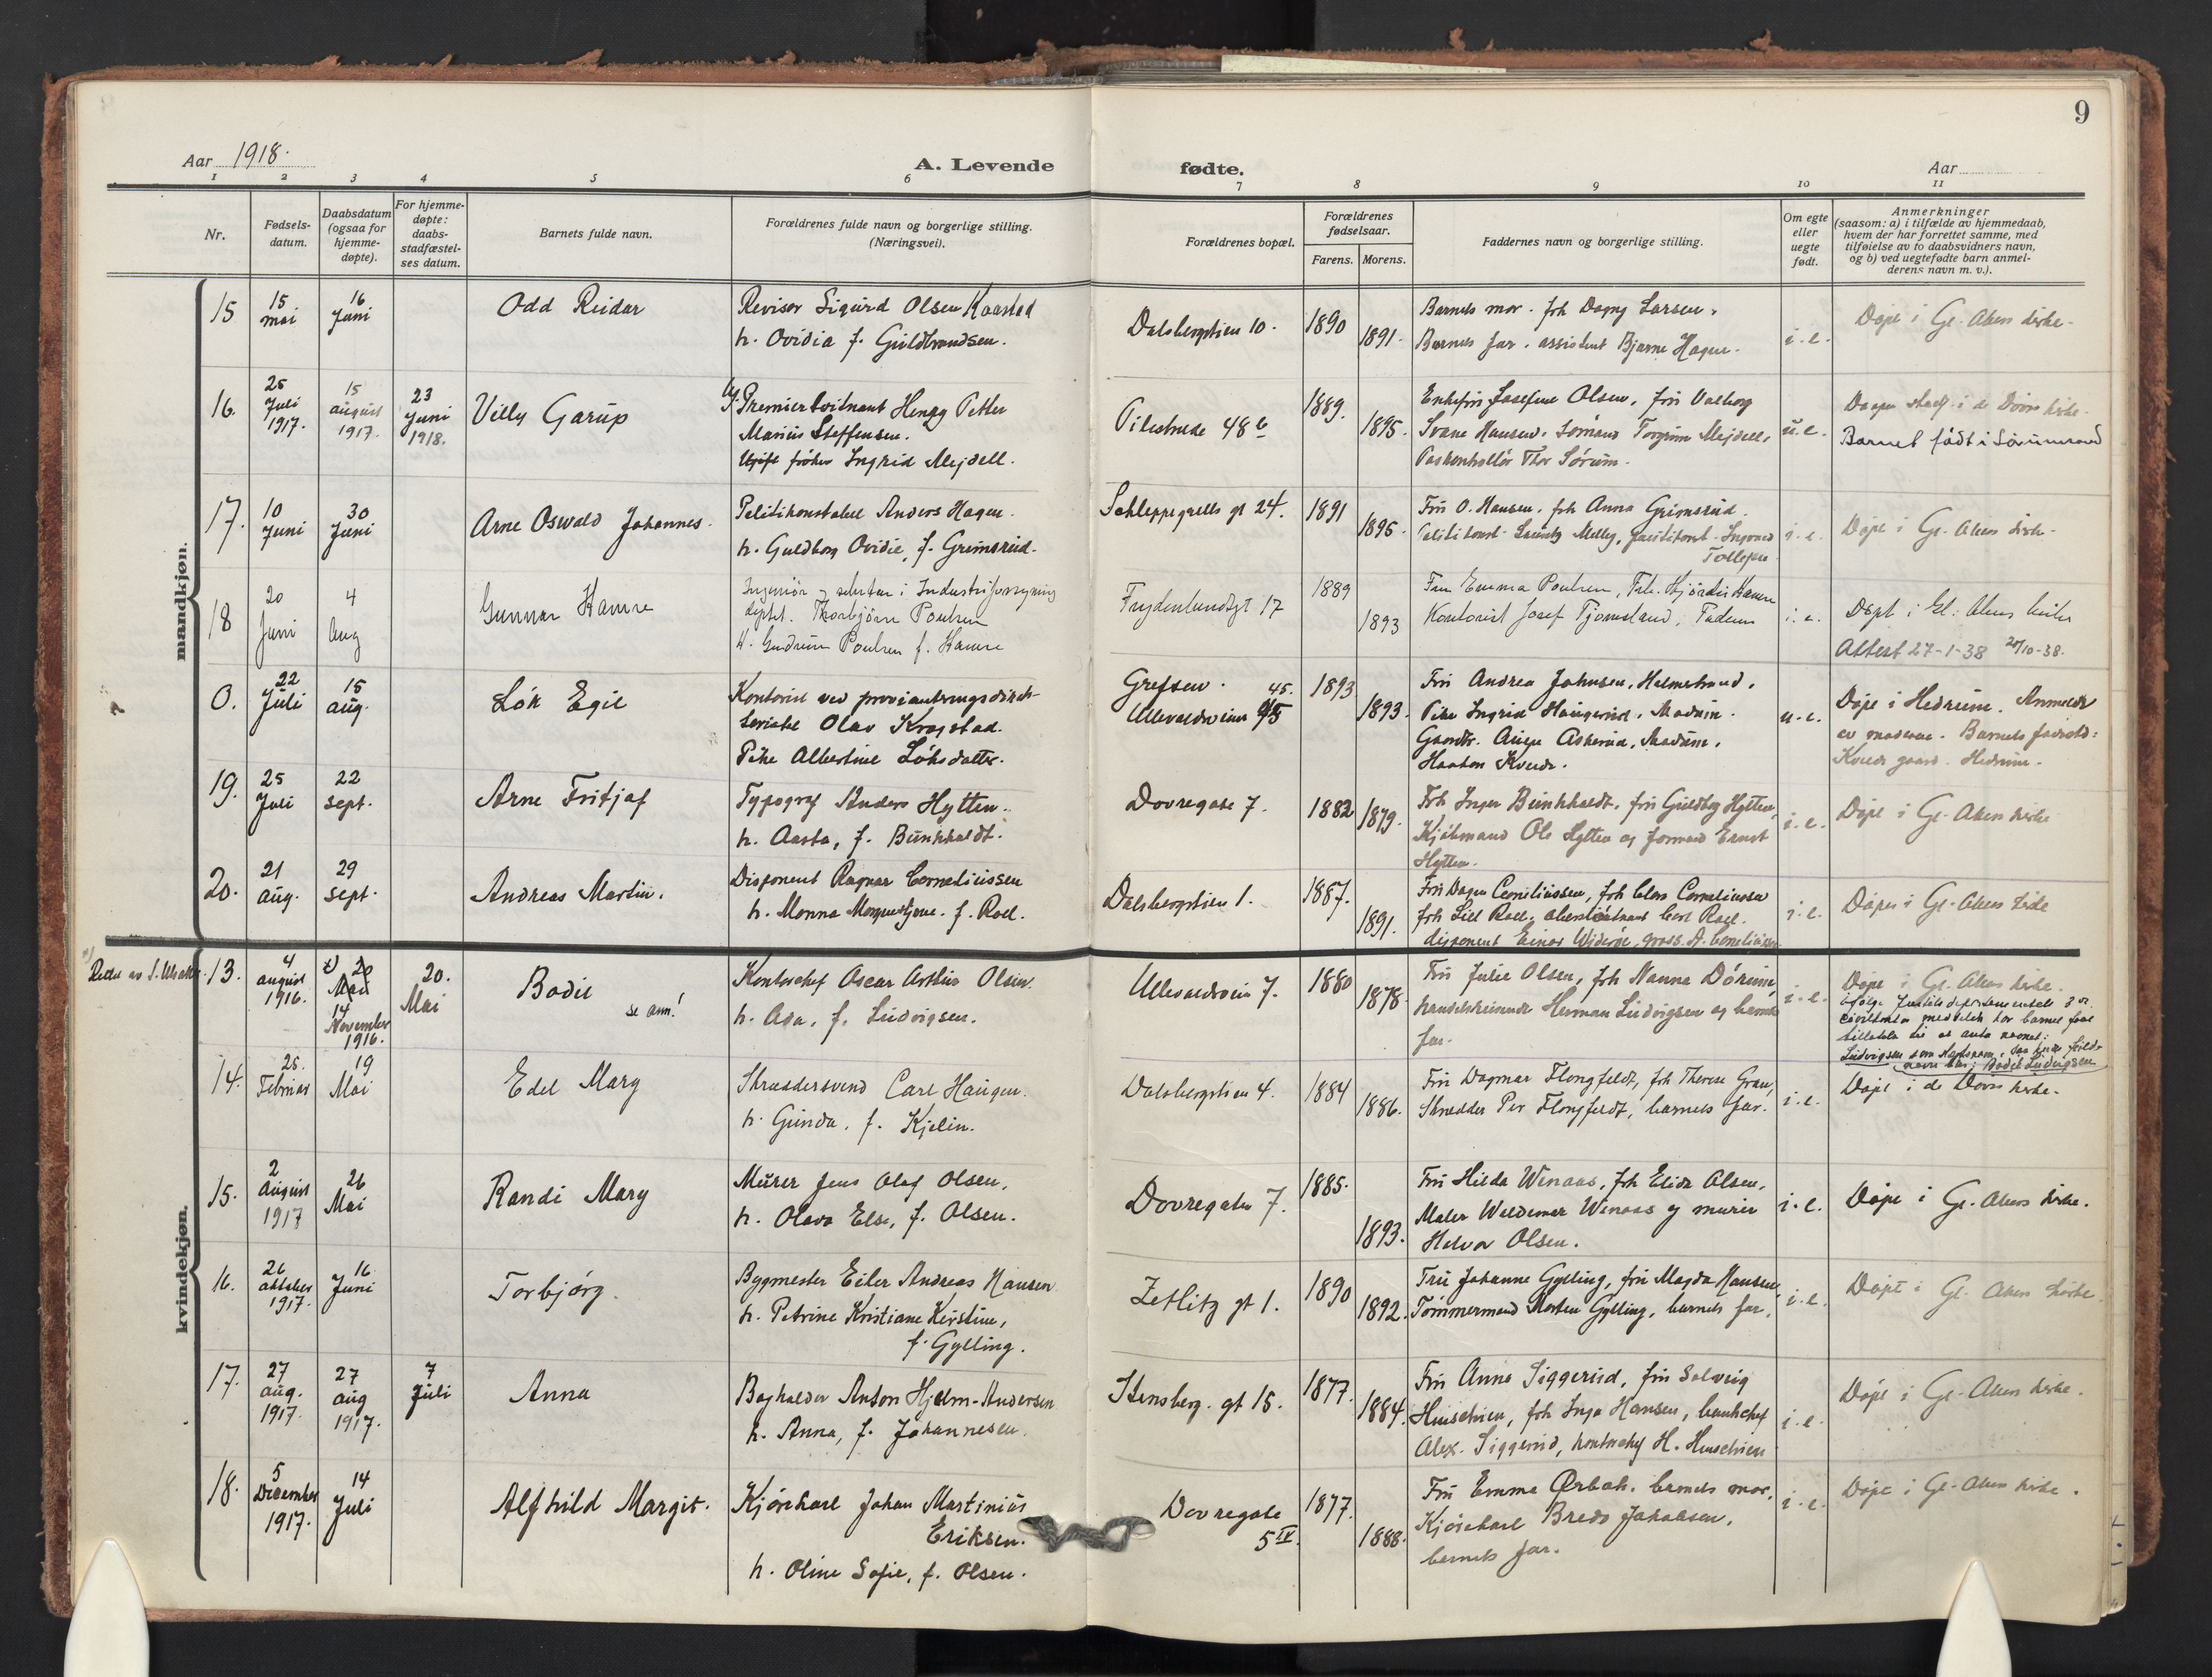 9
Aar 1918.
A. Levende
fødte.
Aar
1 2 3 4 5 6 7 8 9 10 11
Nr.
Fødsels-
datum.
Daabsdatum
(ogsaa for
hjemme-
døpte).
For hjemme-
døpte:
daabs-
stadfæstel-
ses datum.
Barnets fulde navn.
Forældrenes fulde navn og borgerlige stilling.
(Næringsvei).
Forældrenes bopæl.
Forældrenes
fødselsaar.
Farens. Morens.
Faddernes navn og borgerlige stilling.
Om egte
eller
uegte
født.
Anmerkninger
(saasom: a) i tilfælde av hjemmedaab,
hvem der har forrettet samme, med
tilføielse av to daabsvidners navn,
og b) ved uegtefødte barn anmel-
derens navn m. v.).
mandkjøn.
15
15
mai
16
Juni
Odd Reidar
Revisor Sigurd Olsen Kaastad
h. Ovidia f. Guldbrandsen.
Dalsbergstien 10.
1890
1891.
Barnets mor. frk Dagny Larsen,
Barnets far. assistent Bjarne Hagen.
i.e.
Døpt i Gl. Akers kirke.
16.
25
Juli
1917.
15
august
1917.
23
Juni
1918.
Villy Garup
Premierløitnant Henry Petter
Marius Steffensen.
Ugift frøken Ingrid Mejdell.
Pilestræde 48 b
1889.
1895.
Enkefru Josefine Olsen, fru Valborg
Svane Hansen. Sømand Torgrim Mejdell,
Thor Sørum.
u.e.
i de Døves kirke.
Barnet født i Sørumsand
17.
10
Juni
30
Juni
Arne Oswald Johannes.
Politikonstabel Anders Hagen.
h. Guldborg Ovidie, f. Grimsrud.
Schleppegrells gt 24.
1891
1895.
Fru O. Hansen, frk Anna Grimsrud.
i.e.
Døpt i Gl. Akers kirke.
18
20
Juni
4
Aug
Gunnar Hamre
Ingeniør og sekretær i Industriforsyning
deptet. Thorbjørn Poulsen
H. Gudrun Poulsen f. Hamre
Frydenlundsgt 17
1889
1893
Fru Emma Poulsen, Frk. Hjørdis Hamre
Kontorist Josef Tjomsland, Faderen
i.e.
Døpt i Gl. Akers kirke
Attest 27-1-38 20/10-38.
0.
22
Juli
15
aug.
Løk Egil
Kontorist ved provianteringsdirek-
toriatet Olav Krogstad.
Pike Albertine Løksdatter.
Grefsen.
45.
Ullevaldsveien 95
1893
1893.
Fru Andrea Johnsen, Holmestrand,
Pike Ingrid Haugerud. Modum.
Gaardbr. Auge Askerud, Modum,
Haakon Kverde.
u.e.
Døpt i Hedrum. Anmeldt
av moderen. Barnets fødested:
Kverde gaard. Hedrum.
19.
25
Juli
22
sept.
Arne Fritjof
Typograf Anders Hytten.
h. Aasta, f. Bunkholdt.
Dovregate 7.
1882
1879.
Frk Inger Bunkholdt, fru Guldborg Hytten,
Kjøbmand Ole Hytten og formand Ernst
Hytten.
i.e.
Døpt i Gl. Akers kirke
20.
21
aug.
29
sept.
Andreas Martin.
Disponent Ragnar Corneliussen
h. Monna Morgenstjerne. f. Roll.
Dalsbergstien 1.
1887.
1891.
Fru Dagny Corneliussen, frk Clara Corneliussen
frk Lill Roll. oberstløitnant Carl Roll.
disponent Einar Widerøe, gross. A. Corneliussen
i.e.
Døpt i Gl. Akers kirke
kvindekjøn.
13.
4
august
1916.
20
Mai
14
November
1916.
20.
Mai
Bodil
se anm!
Kontorchef Oscar Arthur Olsen.
h. Aga, f. Ludvigsen.
Ullevaldsveien 7.
1880
1878.
Fru Julie Olsen, frk Nanna Dørum,
handelsreisende Herman Ludvigsen og barnets
far.
i.e.
Døpt i Gl. Akers kirke.
tilladelse til at anta navnet:
Ludvigsen som
navn blir: Bodil Ludvigsen
14.
25.
Februar
19
Mai
Edel Mary
Skræddersvend Carl Haugen.
h. Gunda, f. Kjelin.
Dalsbergstien 4.
1884
1886.
Fru Dagmar Flongfeldt, frk Therese Gran,
Skredder Per Flongfeldt, barnets far.
i.e.
Døpt i de Døves kirke.
15.
2
August
1917
26
Mai
Randi Mary
Murer Jens Olaf Olsen.
h. Olava Else, f. Olsen.
Dovregaten 7.
1885.
1893.
Fru Hilda Winaas, frk Elida Olsen,
Maler Waldemar Winaas og murer
Halvor Olsen.
i.e.
Døpt i Gl. Akers kirke.
16.
26
oktober
1917.
16
Juni
Torbjørg.
Bygmester Eiler Andreas Hansen
h. Petrine Kristiane Kirstine,
f. Gylling.
Zetlitz gt 1.
1890
1892.
Fru Johanne Gylling, fru Magda Hansen,
Tømmermand Morten Gylling, barnets far.
i.e.
Døpt i Gl. Akers kirke
17.
27
aug.
1917.
27
aug
1917.
7
Juli
Anna
Bogholder Anton Hjelm-Andersen
h. Anna, f. Johannesen.
Stensberg. gt 15.
1877.
1884.
Fru Anna Siggerud, fru Solveig
Huschien, frk Inga Hansen, bankchef
Alex. Siggerud, kontorchef H. Huschien
i.e.
Døpt i Gl. Akers kirke.
18.
5
December
1917.
14
Juli
Alfhild Margit.
Kjørekarl Johan Martinius
Eriksen.
h. Oline Sofie, f. Olsen.
Dovregate
5 IV.
1877.
1888.
Fru Emma Ørbak, barnets mor.
Kjørekarl Bredo Jakobsen,
barnets far.
i.e.
Døpt i Gl. Akers kirke.